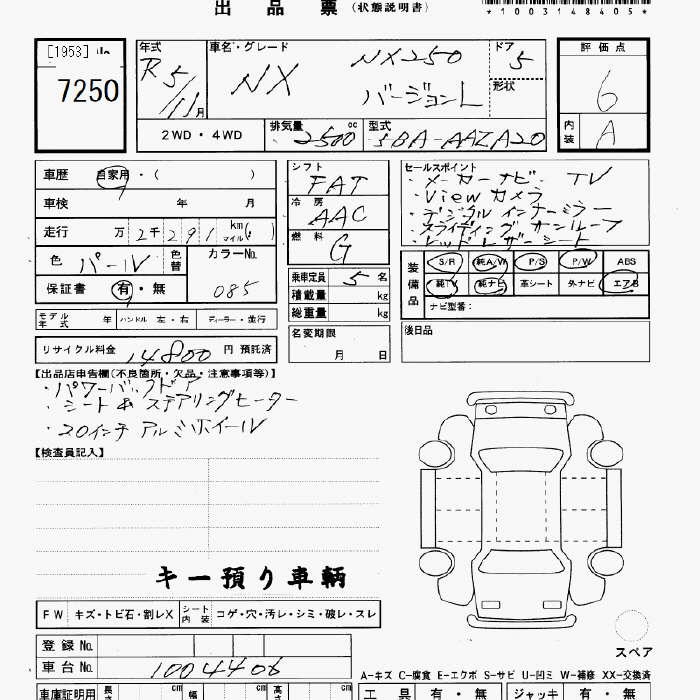 出品票 (状態説明書)
*1003148405*
[1953]
7250
年式 R5/11月
車名・グレード NX NX250 バージョンL
ドア 5
形状
2WD・4WD
排気量 2500 cc
型式 5BA-AAZA20
評価点 6
内装 A
車歴 自家用・( )
車検 年 月
走行 万 2千 2 9 1 km マイル( )
色 パール 色替
カラーNo. 085
保証書 有・無
モデル年式 年 ハンドル 左・右 ディーラー・並行
リサイクル料金 14800 円 預託済
シフト FAT
冷房 AAC
燃料 G
乗車定員 5 名
積載量 kg
総重量 kg
名変期限 月 日
セールスポイント
・メーカーナビ・TV
・Viewカメラ
・デジタルインナーミラー
・スライディングサンルーフ
・レッドレザーシート
装備品 S/R 純A/W P/S P/W ABS
純TV 純ナビ 革シート 外ナビ エアB
ナビ型番:
後日品
【出品店申告欄(不良箇所・欠品・注意事項等)】
・パワーバックドア
・シート& ステアリングヒーター
・20インチ アルミホイール
【検査員記入】
キー預り車輌
FW キズ・トビ石・割レX シート内装 コゲ・穴・汚レ・シミ・破レ・スレ
登録No.
車台No. 1004406
車庫証明用 長さ cm 幅 cm 高さ cm
スペア
A-キズ C-腐食 E-エクボ S-サビ U-凹ミ W-補修 XX-交換済
工具 有・無 ジャッキ 有・無